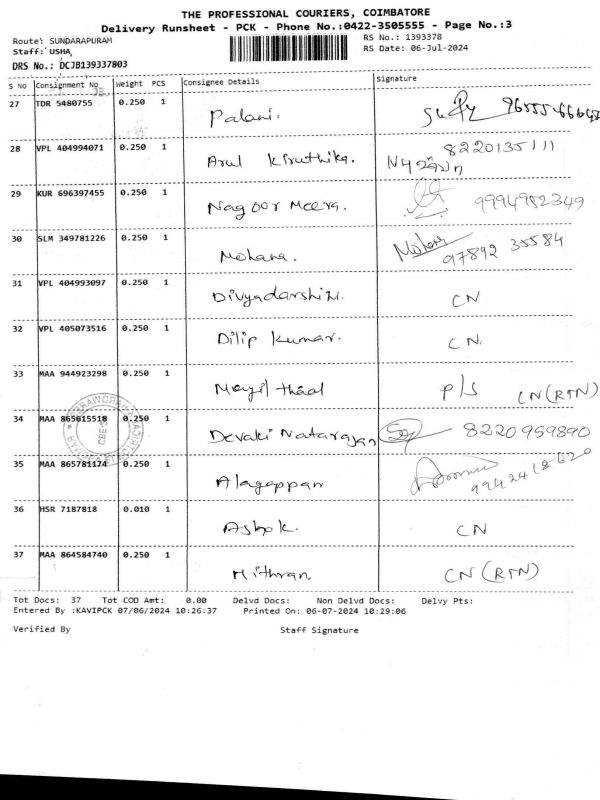 THE PROFESSIONAL COURIERS, COIMBATORE
Delivery Runsheet - PCK - Phone No.:0422-3505555 - Page No.:3
Route: SUNDARAPURAM RS No.: 1393378
Staff: USHA RS Date: 06-Jul-2024
DRS No.: DCJB139337803
S No Consignment No Weight PCS Consignee Details Signature
27 TDR 5480755 0.250 1 Palani.
28 VPL 404994071 0.250 1 Arul Kiruthika. 8220135111
29 KUR 696397455 0.250 1 Nagoor Meera. 9994982349
30 SLM 349781226 0.250 1 Mohana. Mohana 97892 35584
31 VPL 404993097 0.250 1 Divyadarshini. CN
32 VPL 405073516 0.250 1 Dilip Kumar. CN.
33 MAA 944923298 0.250 1 Mayil thaal P/S CN(RTN)
34 MAA 865615518 0.250 1 Devaki Natarajan 8220959890
35 MAA 865781174 0.250 1 Alagappan
36 HSR 7187818 0.010 1 Ashok. CN
37 MAA 864584740 0.250 1 Mithran. CN(RTN)
Tot Docs: 37 Tot COD Amt: 0.00 Delvd Docs: Non Delvd Docs: Delvy Pts:
Entered By :KAVIPCK 07/06/2024 10:26:37 Printed On: 06-07-2024 10:29:06
Verified By Staff Signature